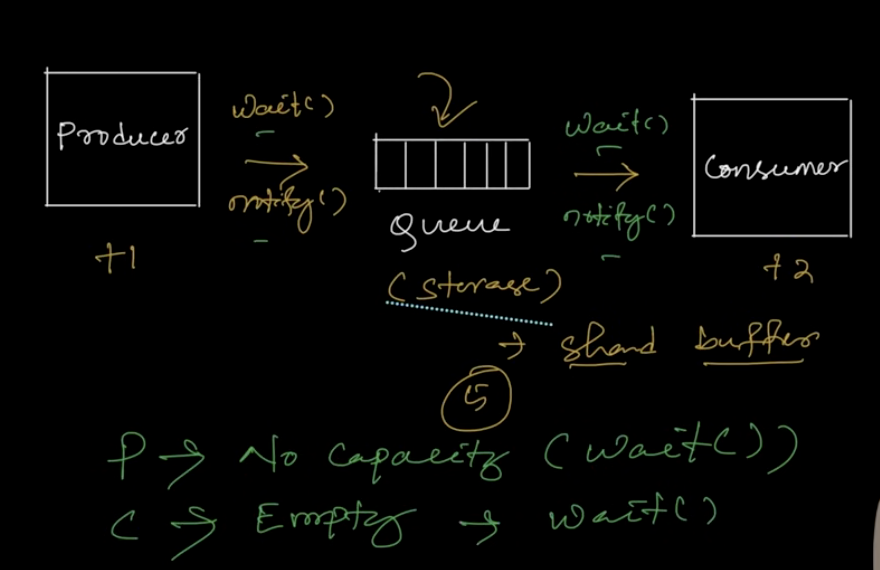 Producer
wait()
notify()
+1
Queue
(storage)
→ shared buffer
5
wait()
notify()
Consumer
+2
P → No Capacity (wait())
C → Empty → wait()